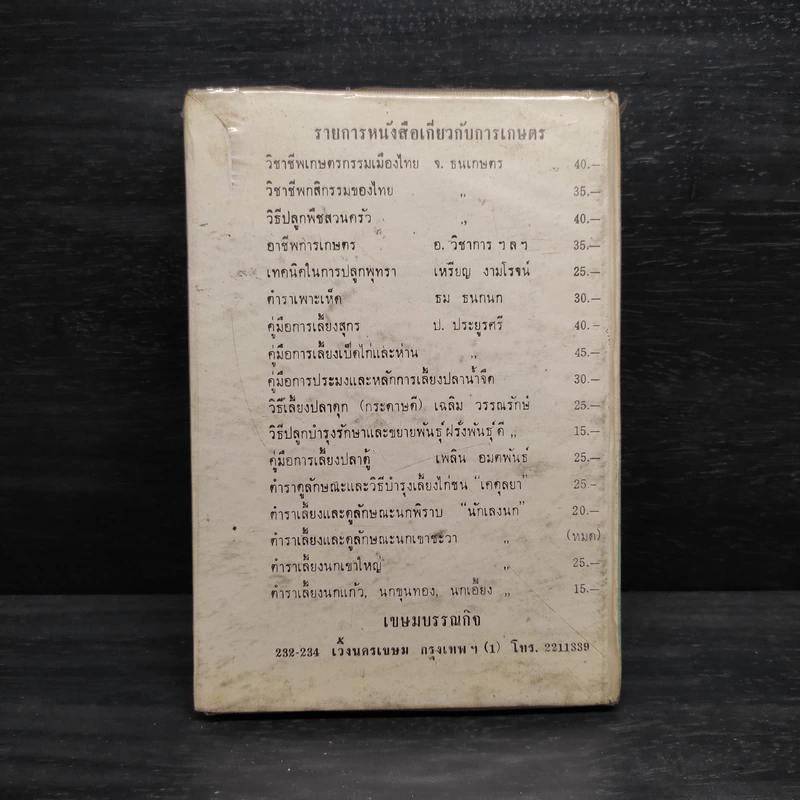 รายการหนังสือเกี่ยวกับการเกษตร
วิชาชีพเกษตรกรรมเมืองไทย จ. ธนเกษตร 40.—
วิชาชีพกสิกรรมของไทย „ 35.—
วิธีปลูกพืชสวนครัว „ 40.—
อาชีพการเกษตร อ. วิชาการ ฯ ล ฯ 35.—
เทคนิคในการปลูกพุทรา เหรียญ งามโรจน์ 25.—
ตำราเพาะเห็ด ธม ธนกนก 30.—
คู่มือการเลี้ยงสุกร ป. ประยูรศรี 40.-
คู่มือการเลี้ยงเป็ดไก่และห่าน „ 45.—
คู่มือการประมงและหลักการเลี้ยงปลาน้ำจืด 30.—
วิธีเลี้ยงปลาดุก (กระดาษดี) เฉลิม วรรณรักษ์ 25.—
วิธีปลูกบำรุงรักษาและขยายพันธุ์ฝรั่งพันธุ์ดี „ 15.—
คู่มือการเลี้ยงปลาตู้ เพลิน อมตพันธ์ 25.—
ตำราดูลักษณะและวิธีบำรุงเลี้ยงไก่ชน “เคดุลยา” 25.-
ตำราเลี้ยงและดูลักษณะนกพิราบ “นักเลงนก” 20.—
ตำราเลี้ยงและดูลักษณะนกเขาชะวา „ (หมด)
ตำราเลี้ยงนกเขาใหญ่ „ 25.—
ตำราเลี้ยงนกแก้ว, นกขุนทอง, นกเอี้ยง „ 15.—
เขษมบรรณกิจ
232-234 เวิ้งนครเขษม กรุงเทพ ฯ (1) โทร. 2211339